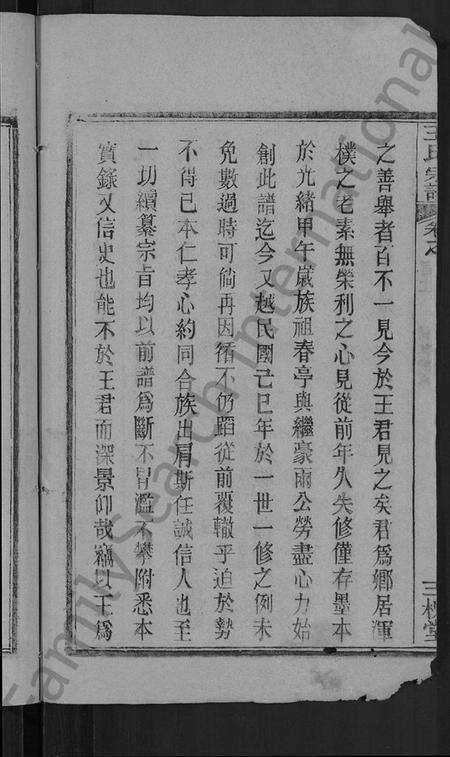 王氏宗譜
三槐堂
之善舉者百不一見今於王君見之矣君爲鄉居渾
樸之老素無榮利之心見從前年久失修僅存墨本
於光緒甲午歲族祖春亭與繼豪兩公勞盡心力始
創此譜迄今又越民國己巳年於一世一修之例未
免數過時可倘再因循不仍蹈從前覆轍乎迫於勢
不得已本仁孝心約同合族出肩斯任誠信人也至
一切續纂宗旨均以前譜爲斷不冒濫不攀附悉本
實錄又信史也能不於王君而深景仰哉竊以王爲
FamilySearch International